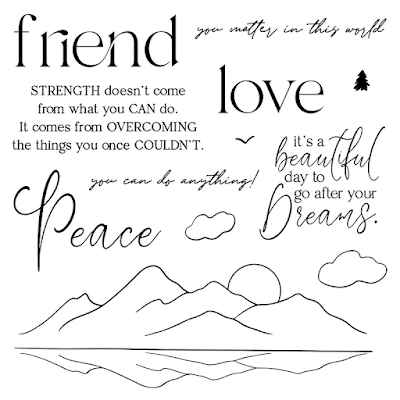 friend
you matter in this world
STRENGTH doesn't come
from what you CAN do.
It comes from OVERCOMING
the things you once COULDN'T.
love
it's a
beautiful
day to
go after your
Dreams.
you can do anything!
Peace